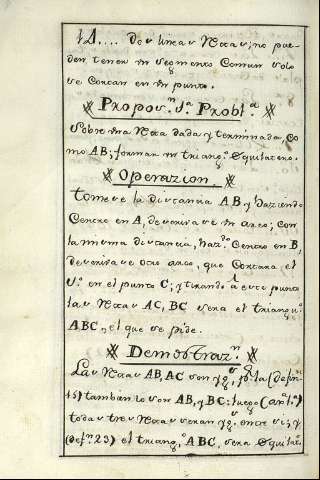 14.... Dos lineas Rectas; no pue-
den tener un segmento Comun solo
se Cortan en un punto.
Propos.n 1.a Probl.a
Sobre una Recta dada y terminada, Co
mo AB; formar un triang.o Equilatero.
Operazion.
Tomese la distancia AB y haziendo
Centro en A, descrivase un arco; con
la misma distancia, haz.do Centro en B,
descrivase otro arco, que Cortara el
1.o en el punto C; y tirando a este punto
las Rectas AC, BC sera el triangu.o
ABC, el que se pide.
Demostraz.n
Las Rectas AB, AC son yg.s, p.r la (defin.n
15) tambien lo son AB, y BC: luego (ax.a 1.o)
todas tres Rectas seran yg.s entre si; y
(def.n 23) el triang.o ABC, sera Equilat.o